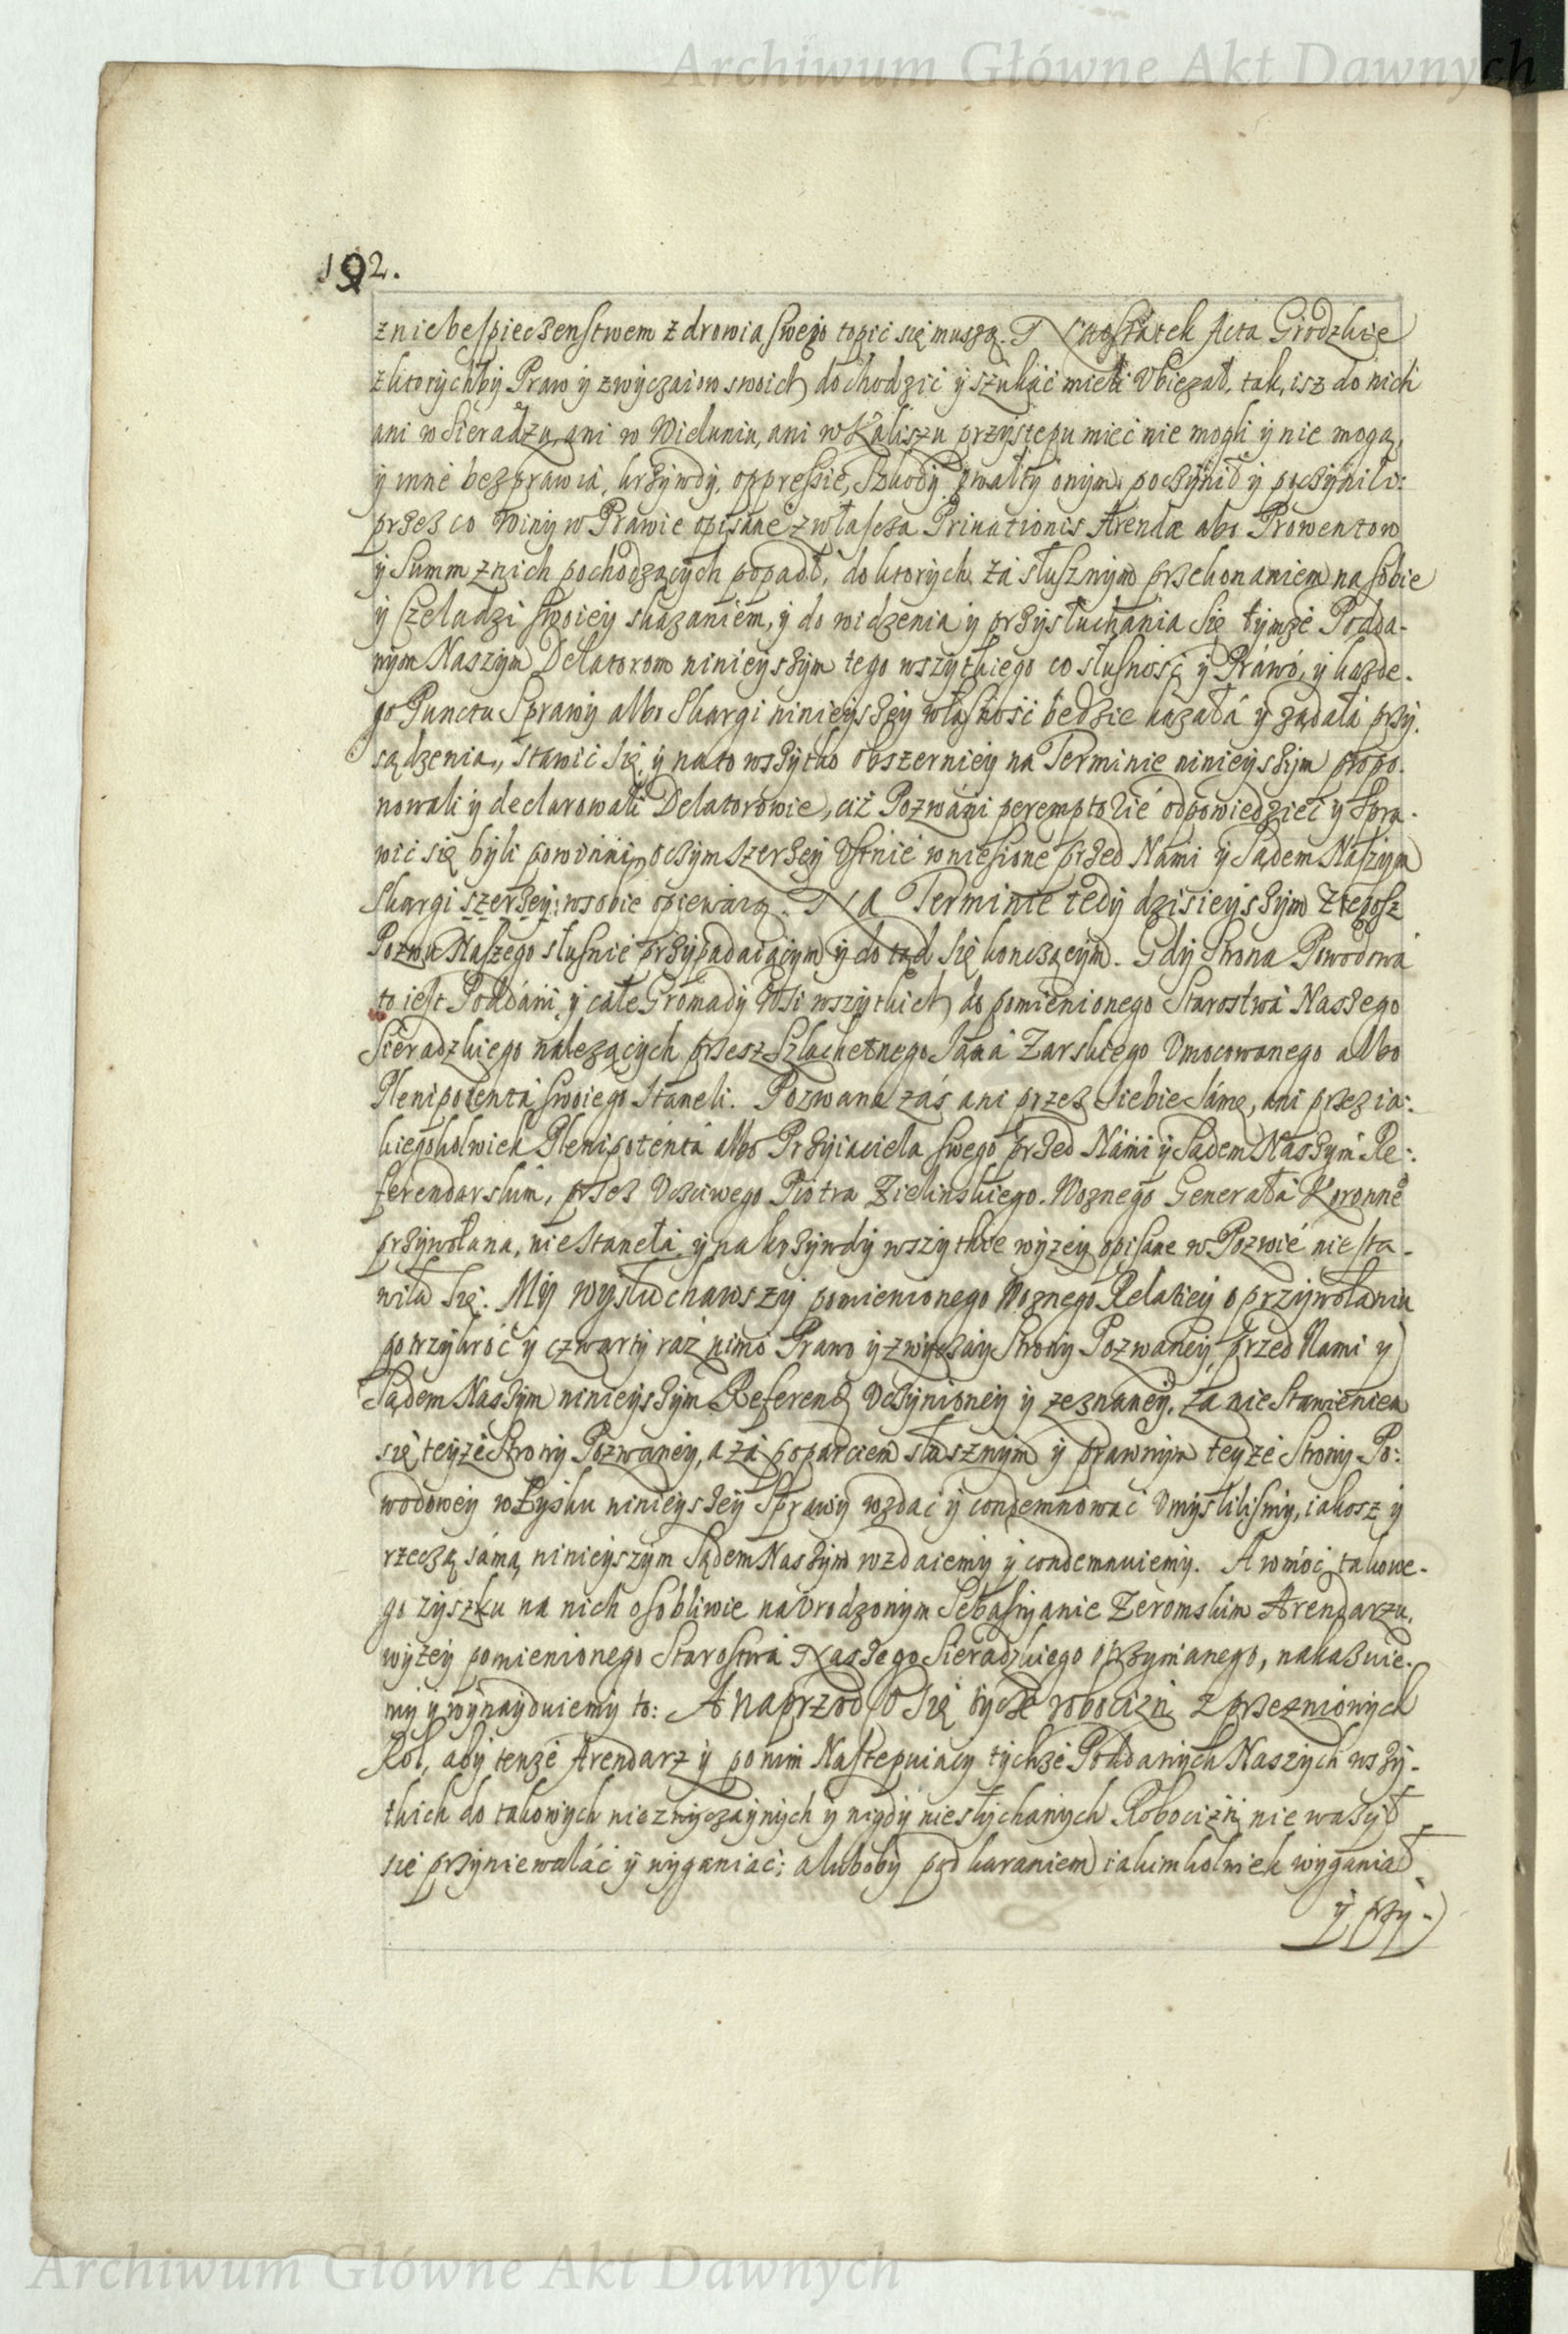 Archiwum Główne Akt Dawnych
192.
z niebespieczenstwem zdrowia swego topić się muszą. Naostatek Acta Grodzkie
z ktorychby Praw y zwyczaiow swoich dochodzić y szukać mieli Ubiegał, tak, isz do nich
ani w Sieradzu, ani w Wieluniu, ani w Kaliszu przystępu mieć nie mogli y nie mogą,
y inne bezprawia, krzywdy, oppressie, Szkody gwałty onym poczynił y poczynili:
przez co winy w Prawie opisane zwłascza Priuationis Arendæ albo Prowentow
y Summ z nich pochodzących popadł, do ktorych za słusznym przekonaniem na sobie
y Czeladzi swoiey skazaniem, y do widzenia y przysłuchania się tymże Podda-
nym Naszym Delatorom ninieyszym tego wszytkiego co słusność y Prawo, y kazde-
go Punctu Sprawy albo Skargi ninieyszey własność będzie kazała y ządała przy-
sądzenia, stawić się y na to wszytko obszerniey na Terminie ninieyszym propo-
nowali y declarowali Delatorowie, ciż Pozwani peremptorie odpowiedzieć y Spra-
wić się byli powinni, o czym szerzey Ustnie wniesione przed Nami y Sądem Naszym
Skargi szerzey w sobie opiewaią. Na Terminie tedy dzisieyszym z tegosz
Pozwu Naszego słusnie przypadaiącym y do tąd się konczącym. Gdy Strona Powodowa
to iest Poddani y całe Gromady Wsi wszytkich do pomienionego Starostwa Naszego
Sieradzkiego nalezących przesz Szlachetnego Jana Zarskiego Umocowanego albo
Plenipotenta swoiego Staneli. Pozwana zaś ani przez Siebie samę, ani przez ia-
kiegokolwiek Plenipotenta albo Przyiaciela swego przed Nami y Sądem Naszym Re-
ferendarskim, przez Ucsciwego Piotra Zielinskiego Woznego Generała Koronne
przywołana, nie Stanęła y na krzywdy wszytkie wyżey opisane w Pozwie nie sta-
wiła się. My wysłuchawszy pomienionego Woznego Relatiey o przywołaniu
po trzykroć y czwarty raz nimo Prawo y zwyczay Strony Pozwaney, przed Nami y
Sądem Naszym ninieyszym Referend Uczynioney y zeznaney, za nie Stawieniem
się teyże Strony Pozwaney, a za poparciem słusznym y prawnym teyże Strony Po-
wodowey w Zysku ninieyszey Sprawy wzdać y condemnować Umyslilismy, iakosz y
rzeczą samą ninieyszym Sądem Naszym wzdaiemy y condemnuiemy. A w moc takowe-
go zyszku na nich osobliwie na Urodzonym Sebastyanie Żeromskim Arendarzu,
wyżey pomienionego Starostwa Naszego Sieradzkiego otrzymanego, nakazuie-
my y wynayduiemy to: A naprzod co się tycze robocizn z przezniowych
Rol, aby tenze Arendarz y po nim Nastepuiący tychże Poddanych Naszych wszy-
tkich do takowych niezwyczaynych y nigdy niesłychanych Robocizn nie wazył
się przyniewalać y wyganiać; a kuboby pod karaniem iakimkolwiek wyganiał
y przy-
Archiwum Główne Akt Dawnych